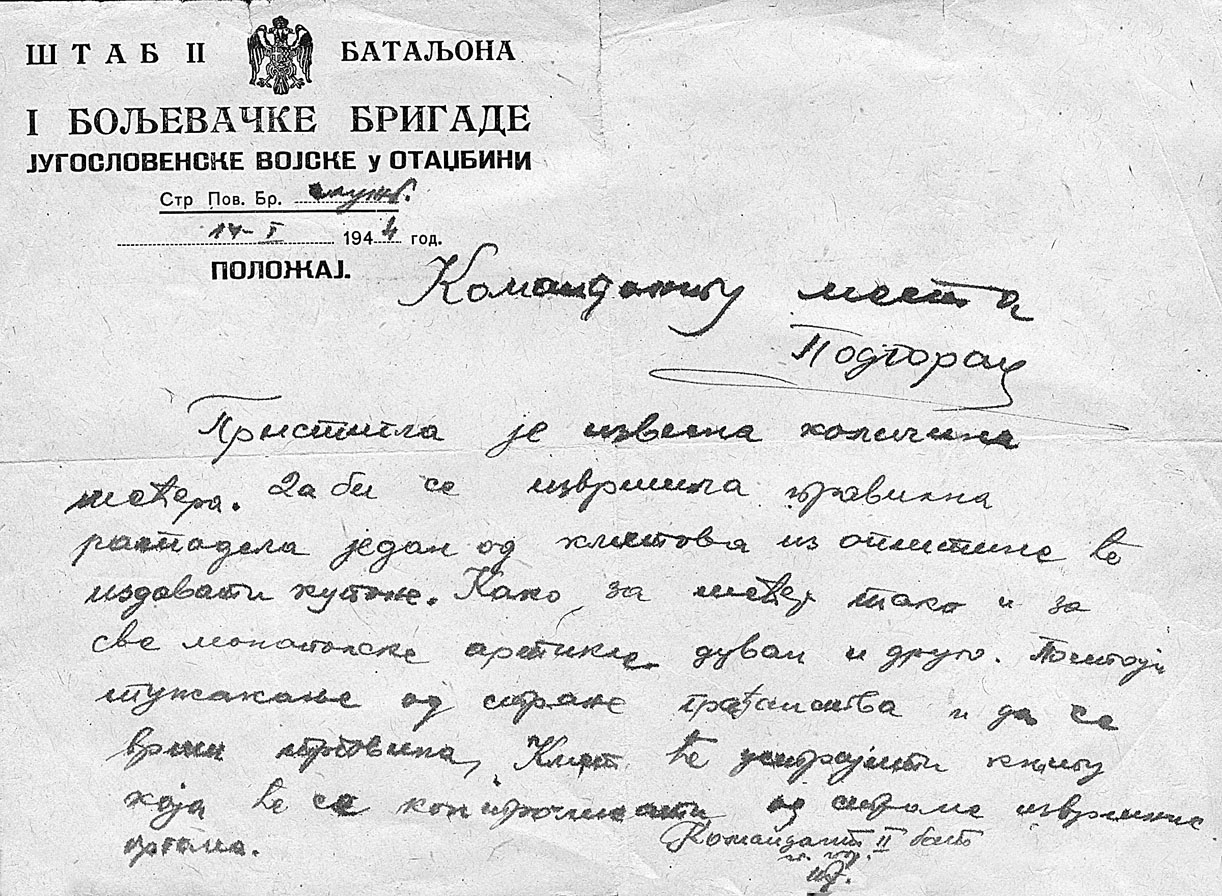 ШТАБ II БАТАЉОНА
I БОЉЕВАЧКЕ БРИГАДЕ
ЈУГОСЛОВЕНСКЕ ВОЈСКЕ у ОТАЏБИНИ
Стр Пов. Бр. служб.
14-I 1944 год.
ПОЛОЖАЈ.
Команданту места
Подгорац
Пристигла је извесна количина
шећера. Да би се извршила правилна
расподела један од кметова из општине ће
издавати купоне. Како за шећер тако и за
све монополске артикле дуван и друго. Постоји
тужакање од стране грађанства и да се
врши трговина, Кмет ће устројити књигу
која ће се контролисати од стране извршних
органа.
Командант II бат